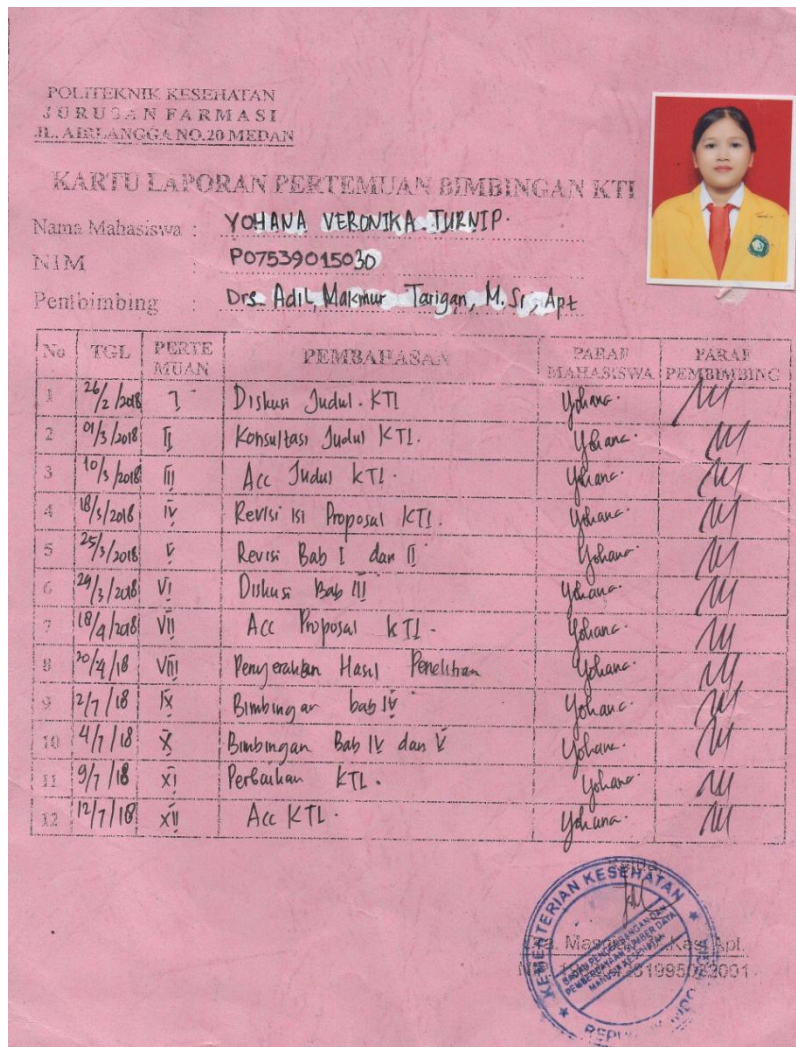 POLITEKNIK KESEHATAN
JURUSAN FARMASI
JL. AIRLANGGA NO.20 MEDAN
KARTU LAPORAN PERTEMUAN BIMBINGAN KTI
Nama Mahasiswa : YOHANA VERONIKA TURNIP.
NIM : P07539015030
Pembimbing : Drs. Adil Makmur Tarigan, M.Si, Apt
No TGL PERTEMUAN PEMBAHASAN PARAF MAHASISWA PARAF PEMBIMBING
1 26/2/2018 I Diskusi Judul. KTI Yohana.
2 01/3/2018 II Konsultasi Judul KTI. Yohana.
3 10/3/2018 III Acc Judul KTI. Yohana.
4 18/3/2018 IV Revisi isi Proposal KTI. Yohana.
5 25/3/2018 V Revisi Bab I dan II Yohana.
6 29/3/2018 VI Diskusi Bab III Yohana.
7 18/4/2018 VII Acc Proposal KTI. Yohana.
8 VIII Penyerahan Hasil Penelitian Yohana.
9 2/7/18 IX Bimbingan bab IV Yohana.
10 4/7/18 X Bimbingan Bab IV dan V Yohana.
11 9/7/18 XI Perbaikan KTI. Yohana.
12 12/7/18 XII Acc KTI. Yohana.
KEMENTERIAN KESEHATAN
BADAN PENGEMBANGAN DAN
PEMBERDAYAAN SUMBER DAYA
MANUSIA KESEHATAN